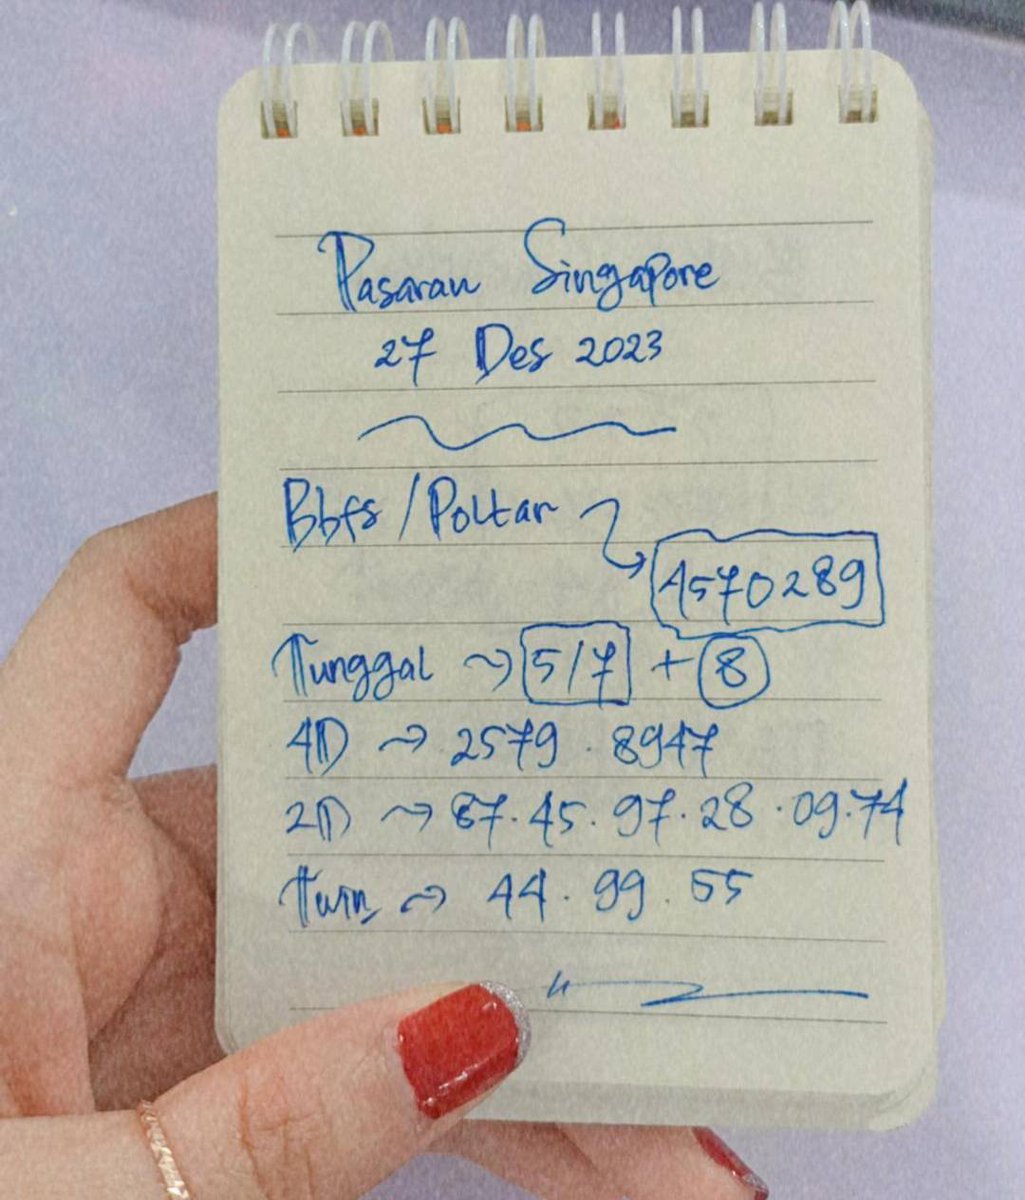 Pasaran Singapore
27 Des 2023
Bbfs / Poltar
4570289
Tunggal 5/7 + 8
4D 2579 . 8947
2D 87. 45. 97. 28 . 09. 74
Twin 44 . 99 . 55